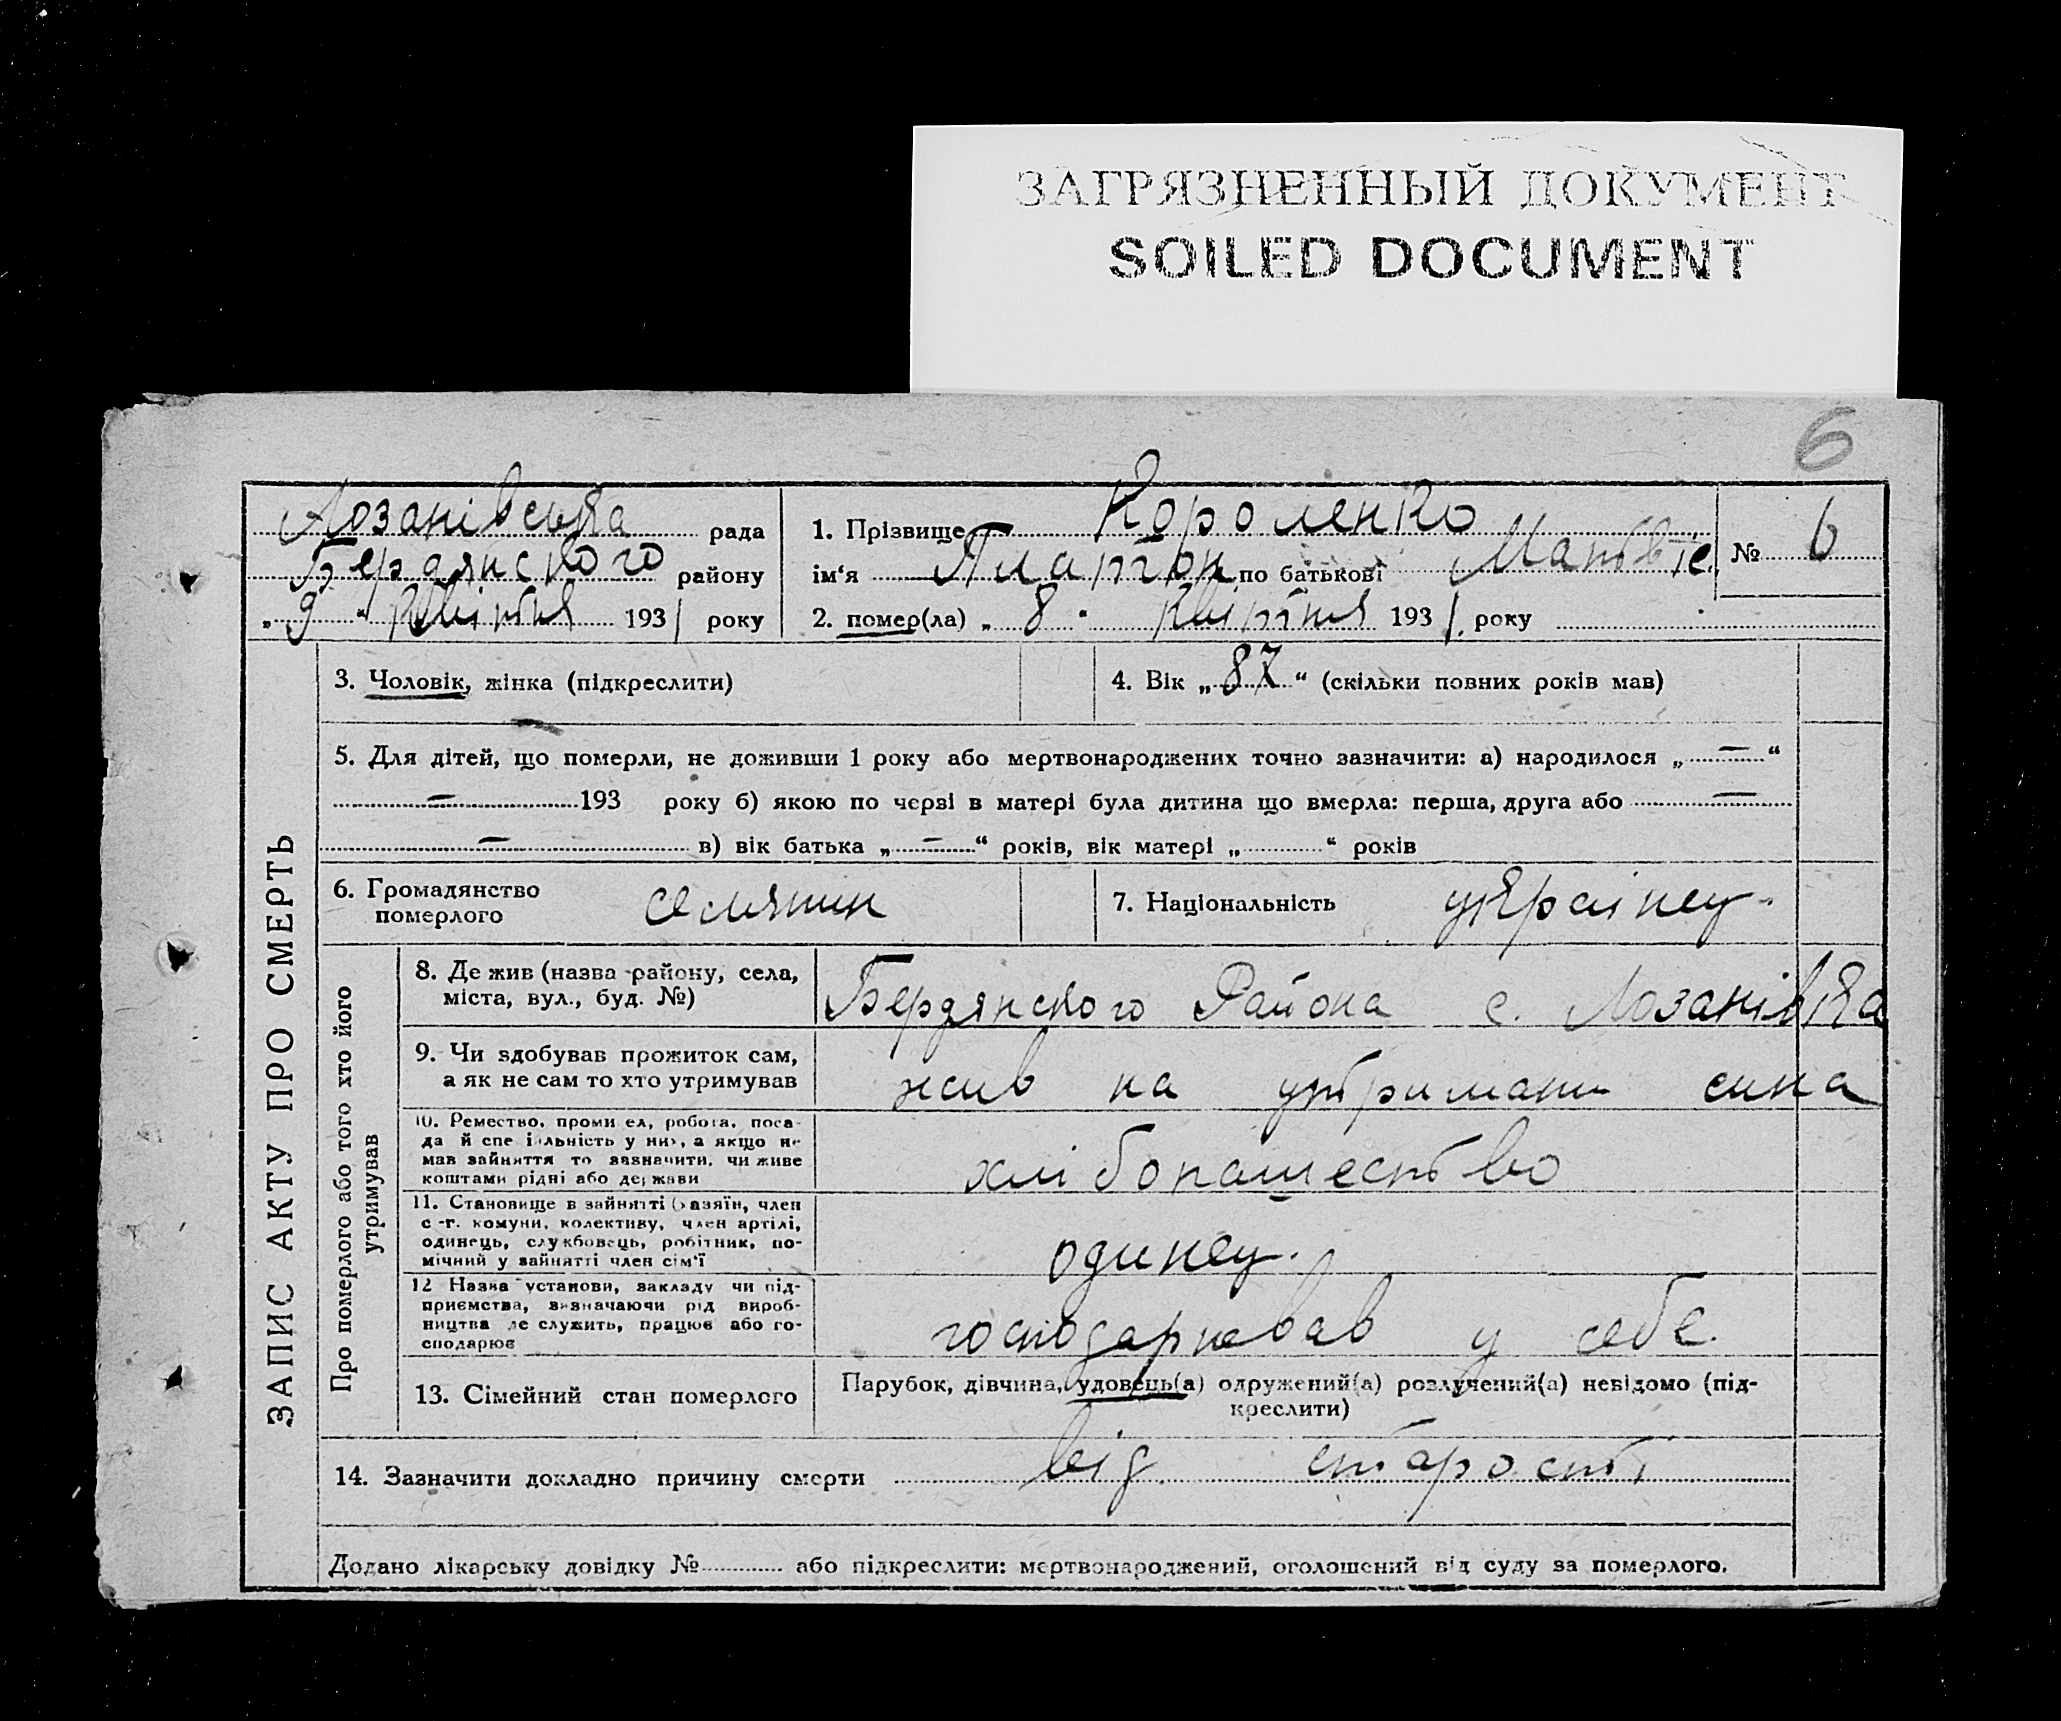 ЗАГРЯЗНЕННЫЙ ДОКУМЕНТ
SOILED DOCUMENT
6
Лозанівська рада
Бердянського району
„ 9 “ Квітня 1931 року
1. Прізвище Короленко
ім‘я по батькові Матвіє.
№ 6
2. помер(ла) „ 8 “ Квіртня 1931. року
3. Чоловік, жінка (підкреслити)
4. Вік „ 87 “ (скільки повних років мав)
5. Для дітей, що померли, не доживши 1 року або мертвонароджених точно зазначити: а) народилося „ — “
— 193 року б) якою по черзі в матері була дитина що вмерла: перша, друга або —
— в) вік батька „ — “ років, вік матері „ “ років
6. Громадянство
померлого
селянин
7. Національність українец.
ЗАПИС АКТУ ПРО СМЕРТЬ
Про померлого або того хто його
утримував
8. Де жив (назва району, села,
міста, вул., буд. №)
Бердянского Района с. Лозанівка
9. Чи здобував прожиток сам,
а як не сам то хто утримував
жив на утримани сина
10. Ремество, проми ел, робота, поса-
да й спе і льність у них, а якщо не
мав зайняття то зазначити, чи живе
коштами рідні або держави
хлібопашество
11. Становище в зайнятті (хазяїн, член
с-г. комуни, колективу, член артілі,
одинець, службовець, робітник, по-
мічний у зайнятті член сім‘ї
одинец.
12 Назва установи, закладу чи під-
приємства, зазначаючи рід вироб-
ництва де служить, працює або го-
сподарює
господарював у себе.
13. Сімейний стан померлого
Парубок, дівчина, удовець(а) одружений(а) розлучений(а) невідомо (під-
креслити)
14. Зазначити докладно причину смерти від старості
Додано лікарську довідку № або підкреслити: мертвонароджений, оголошений від суду за померлого.